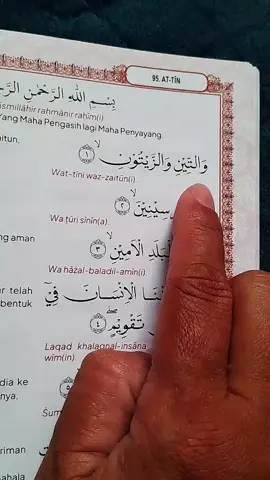 95. AT-TĪN
بِسْمِ اللّٰهِ الرَّحْمٰنِ
ismillāhir rahmānir rahīm(i)
Yang Maha Pengasih lagi Maha Penyayang.
itun.
وَالتِّيْنِ وَالزَّيْتُوْنِۙ ۝١
Wat-tīni waz-zaitūn(i).
سِيْنِيْنَۙ ۝٢
Wa ṭūri sīnīn(a).
ng aman
الْاَمِيْنِۙ ۝٣
Wa hāżal-baladil-amīn(i).
r telah
bentuk
الْاِنْسَانَ فِيْٓ
تَقْوِيْمٍۖ ۝٤
Laqad khalaqnal-insāna
wīm(in).
dia ke
nya,
۝٥
Šum
riman
ahala